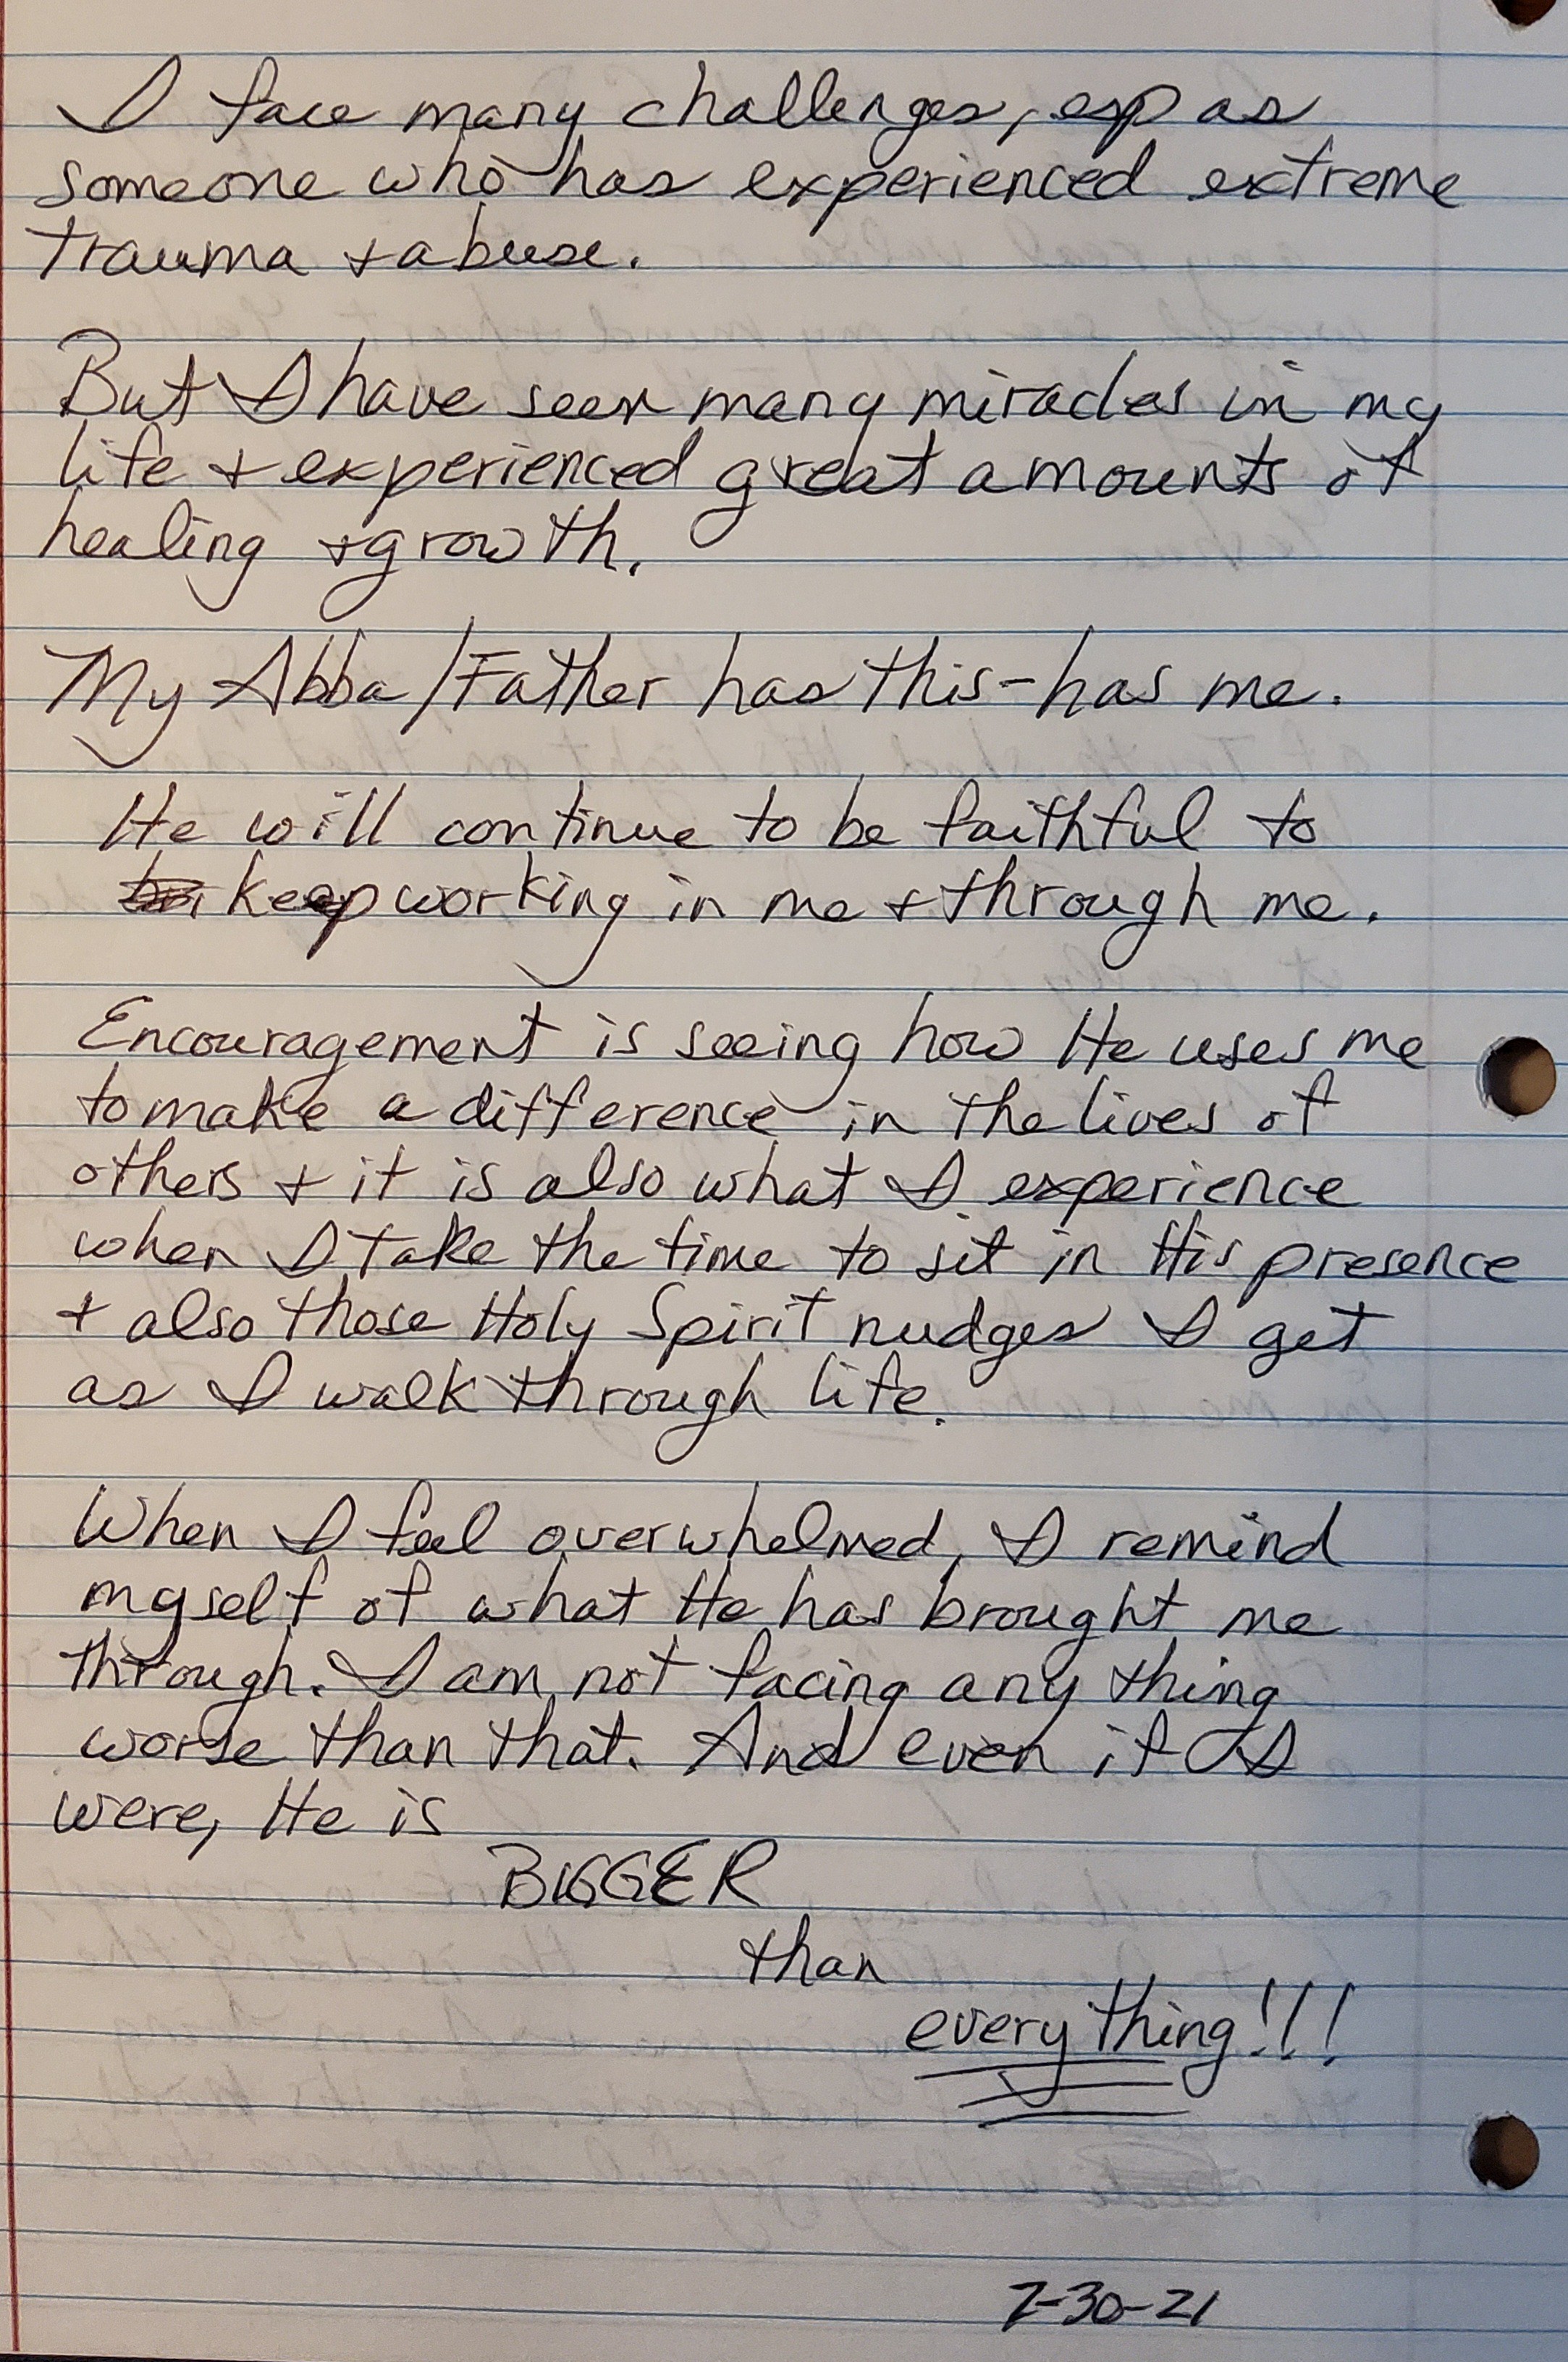 I face many challenges, esp as
someone who has experienced extreme
trauma + abuse.
But I have seen many miracles in my
life + experienced great amounts of
healing + growth.
My Abba/Father has this - has me.
He will continue to be faithful to
keep working in me + through me.
Encouragement is seeing how He uses me
to make a difference in the lives of
others + it is also what I experience
when I take the time to sit in His presence
+ also those Holy Spirit nudges I get
as I walk through life.
When I feel overwhelmed, I remind
myself of what He has brought me
through. I am not facing any thing
worse than that. And even if I
were, He is
BIGGER
than
everything!!!
7-30-21